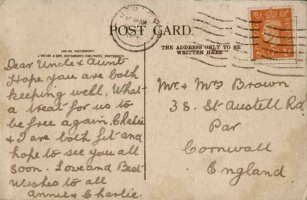 POST CARD.
THE ADDRESS ONLY TO BE
WRITTEN HERE
Dear Uncle & Aunt
Hope you are both
keeping well. What
a treat for us to
be free again. Charlie
& I are both fit and
hope to see you all
soon. Love and Best
Wishes to all
Annie & Charlie.
Mr. & Mrs Brown
38. St Austell Rd.
Par
Cornwall
England